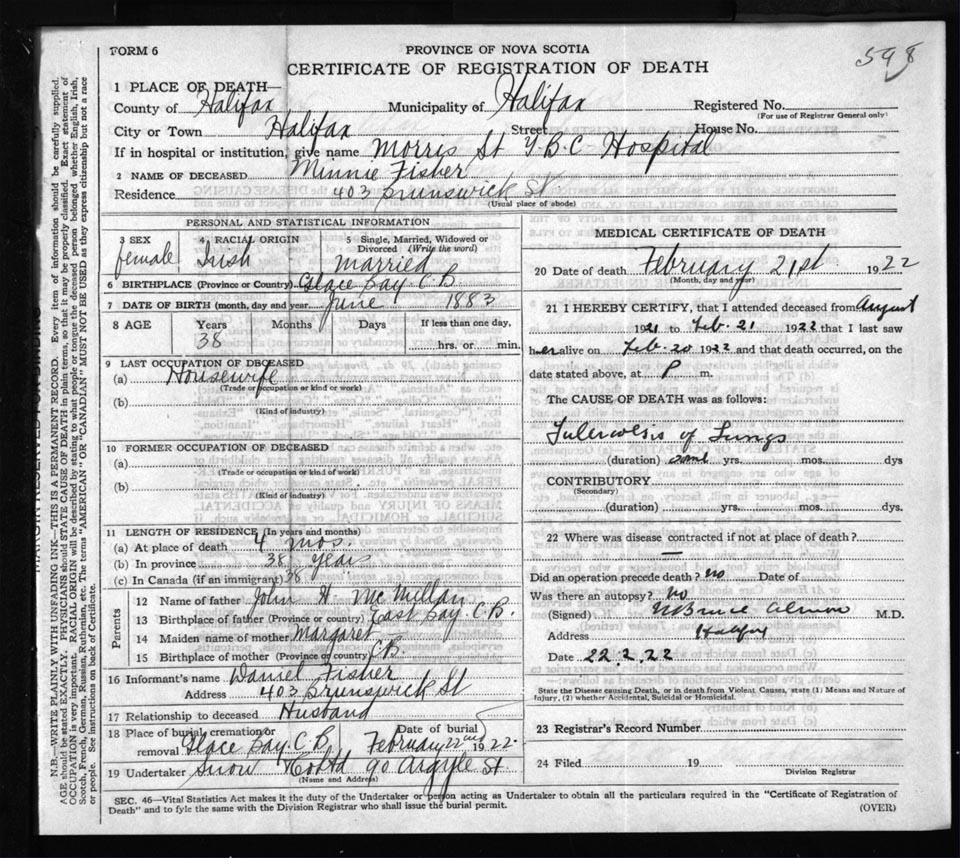 FORM 6
PROVINCE OF NOVA SCOTIA
598
CERTIFICATE OF REGISTRATION OF DEATH
1 PLACE OF DEATH—
County of Halifax Municipality of Halifax Registered No.
(For use of Registrar General only)
City or Town Halifax Street House No.
If in hospital or institution, give name Morris St T.B.C Hospital
2 NAME OF DECEASED Minnie Fisher
Residence 403 Brunswick St
(Usual place of abode)
PERSONAL AND STATISTICAL INFORMATION
3 SEX female
4 RACIAL ORIGIN Irish
5 Single, Married, Widowed or Divorced (Write the word) married
6 BIRTHPLACE (Province or Country) Glace Bay C.B
7 DATE OF BIRTH (month, day and year) June 1883
8 AGE Years Months Days If less than one day,
38 hrs. or min.
9 LAST OCCUPATION OF DECEASED
(a) Housewife
(Trade or occupation or kind or work)
(b)
(Kind of industry)
10 FORMER OCCUPATION OF DECEASED
(a)
(Trade or occupation or kind of work)
(b)
(Kind of industry)
11 LENGTH OF RESIDENCE (In years and months)
(a) At place of death 4 mos.
(b) In province 38 years
(c) In Canada (if an immigrant) 38
Parents
12 Name of father John H McMillan
13 Birthplace of father (Province or country) East Bay C.B.
14 Maiden name of mother Margaret
15 Birthplace of mother (Province or country) C.B.
16 Informant's name Daniel Fisher
Address 403 Brunswick St
17 Relationship to deceased Husband
18 Place of burial cremation or removal Glace Bay. C.B. Date of burial February 22nd 1922.
19 Undertaker Snow Co Ltd 90 Argyle St
(Name and Address)
MEDICAL CERTIFICATE OF DEATH
20 Date of death February 21st 1922
(Month, day and year)
21 I HEREBY CERTIFY, that I attended deceased from August
1921 to Feb. 21 1922 that I last saw
her alive on Feb. 20 1922 and that death occurred, on the
date stated above, at P m.
The CAUSE OF DEATH was as follows:
Tuberculosis of Lungs
(duration) some yrs. mos. dys
CONTRIBUTORY
(Secondary)
(duration) yrs. mos. dys.
22 Where was disease contracted if not at place of death?
—
Did an operation precede death? no Date of
Was there an autopsy? no
(Signed) W Bruce Almon M.D.
Address Halifax
Date 22.2.22
State the Disease causing Death, or in death from Violent Causes, state (1) Means and Nature of
Injury, (2) whether Accidental, Suicidal or Homicidal.
23 Registrar's Record Number
24 Filed 19
Division Registrar
SEC. 46—Vital Statistics Act makes it the duty of the Undertaker or person acting as Undertaker to obtain all the particulars required in the "Certificate of Registration of
Death" and to fyle the same with the Division Registrar who shall issue the burial permit.
(OVER)
MARGIN RESERVED FOR BINDING
N.B.—WRITE PLAINLY WITH UNFADING INK—THIS IS A PERMANENT RECORD. Every item of information should be carefully supplied.
AGE should be stated EXACTLY. PHYSICIANS should STATE CAUSE OF DEATH in plain terms, so that it may be properly classified. Exact statement of
OCCUPATION is very important. RACIAL ORIGIN will be described by stating to what people or tongue the deceased person belonged whether English, Irish,
Scotch, French, German, Russian, Ruthenian, etc. The terms "AMERICAN" OR "CANADIAN" MUST NOT BE USED as they express citizenship but not a race
or people. See instructions on back of Certificate.